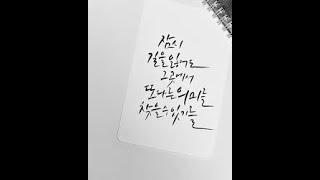 잠시
길을 잃어도
그곳에서
또 다른 의미를
찾을 수 있기를